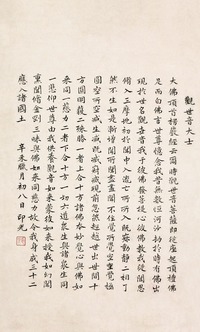 觀世音大士
大佛頂首楞嚴經云爾時觀世音菩薩即從座起頂禮佛
足而白佛言世尊憶念我昔無數恆河沙劫於時有佛出
現於世名觀世音我於彼佛發菩提心彼佛教我從聞思
修入三摩地初於聞中入流亡所所入既寂動靜二相了
然不生如是漸增聞所聞盡盡聞不住覺所覺空空覺極
圓空所空滅生滅既滅寂滅現前忽然超越世出世間十
方圓明獲二殊勝一者上合十方諸佛本妙覺心與佛如
來同一慈力二者下合十方一切六道衆生與諸衆生同
一悲仰世尊由我供養觀音如來蒙彼如來授我如幻聞
熏聞修金剛三昧與佛如來同慈力故令我身成三十二
應入諸國土 辛未臘月初八日 印光